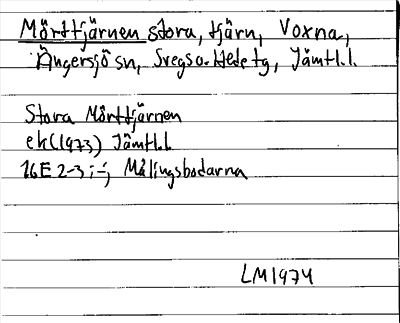 Mörttjärnen stora, tjärn, Voxna,
Ängersjö sn, Svegs o. Hede tg, Jämtl.l.
Stora Mörttjärnen
ek(1973) Jämtl.l.
16E 2-3 i-j, Målingsbodarna
LM1974